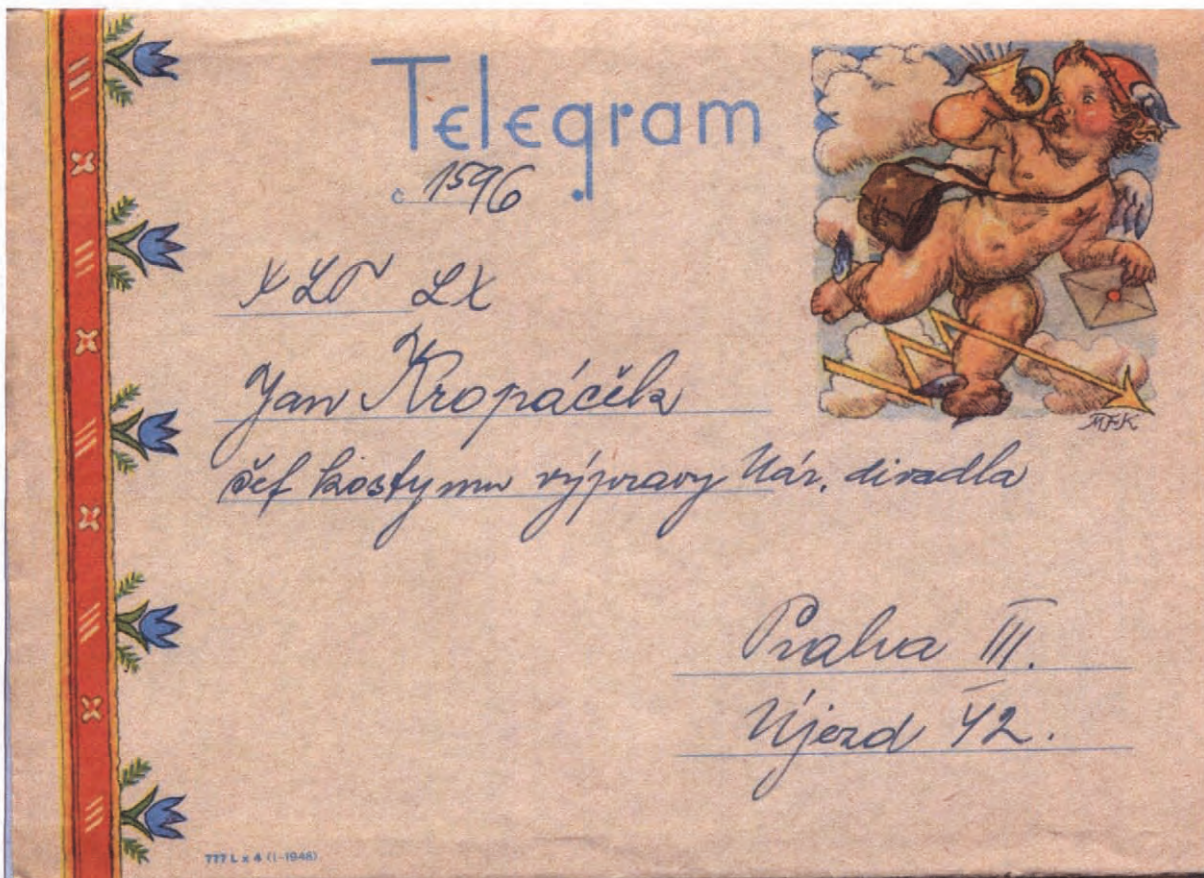 Telegram
č 1596
LX
Jan Kropáček
šéf kostymu výpravy Nár. divadla
MFK
Praha III.
Újezd 42.
777 L x 4 (I-1948)